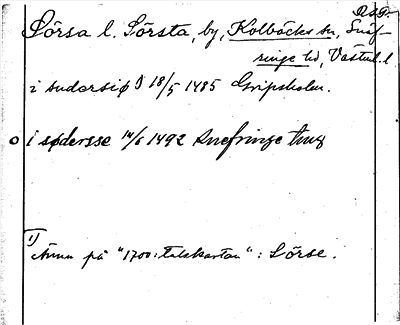 Rdg.
Sörsa l. Sörsta, by, Kolbäcks sn, Snäf-
ringe hd, Västml. l
i sudorsiø 18/5 1485 Gripsholm.
o i sødersse 14/6 1492 Snefringe ting
1)
Ännu på "1700:talskartan": Sörse.